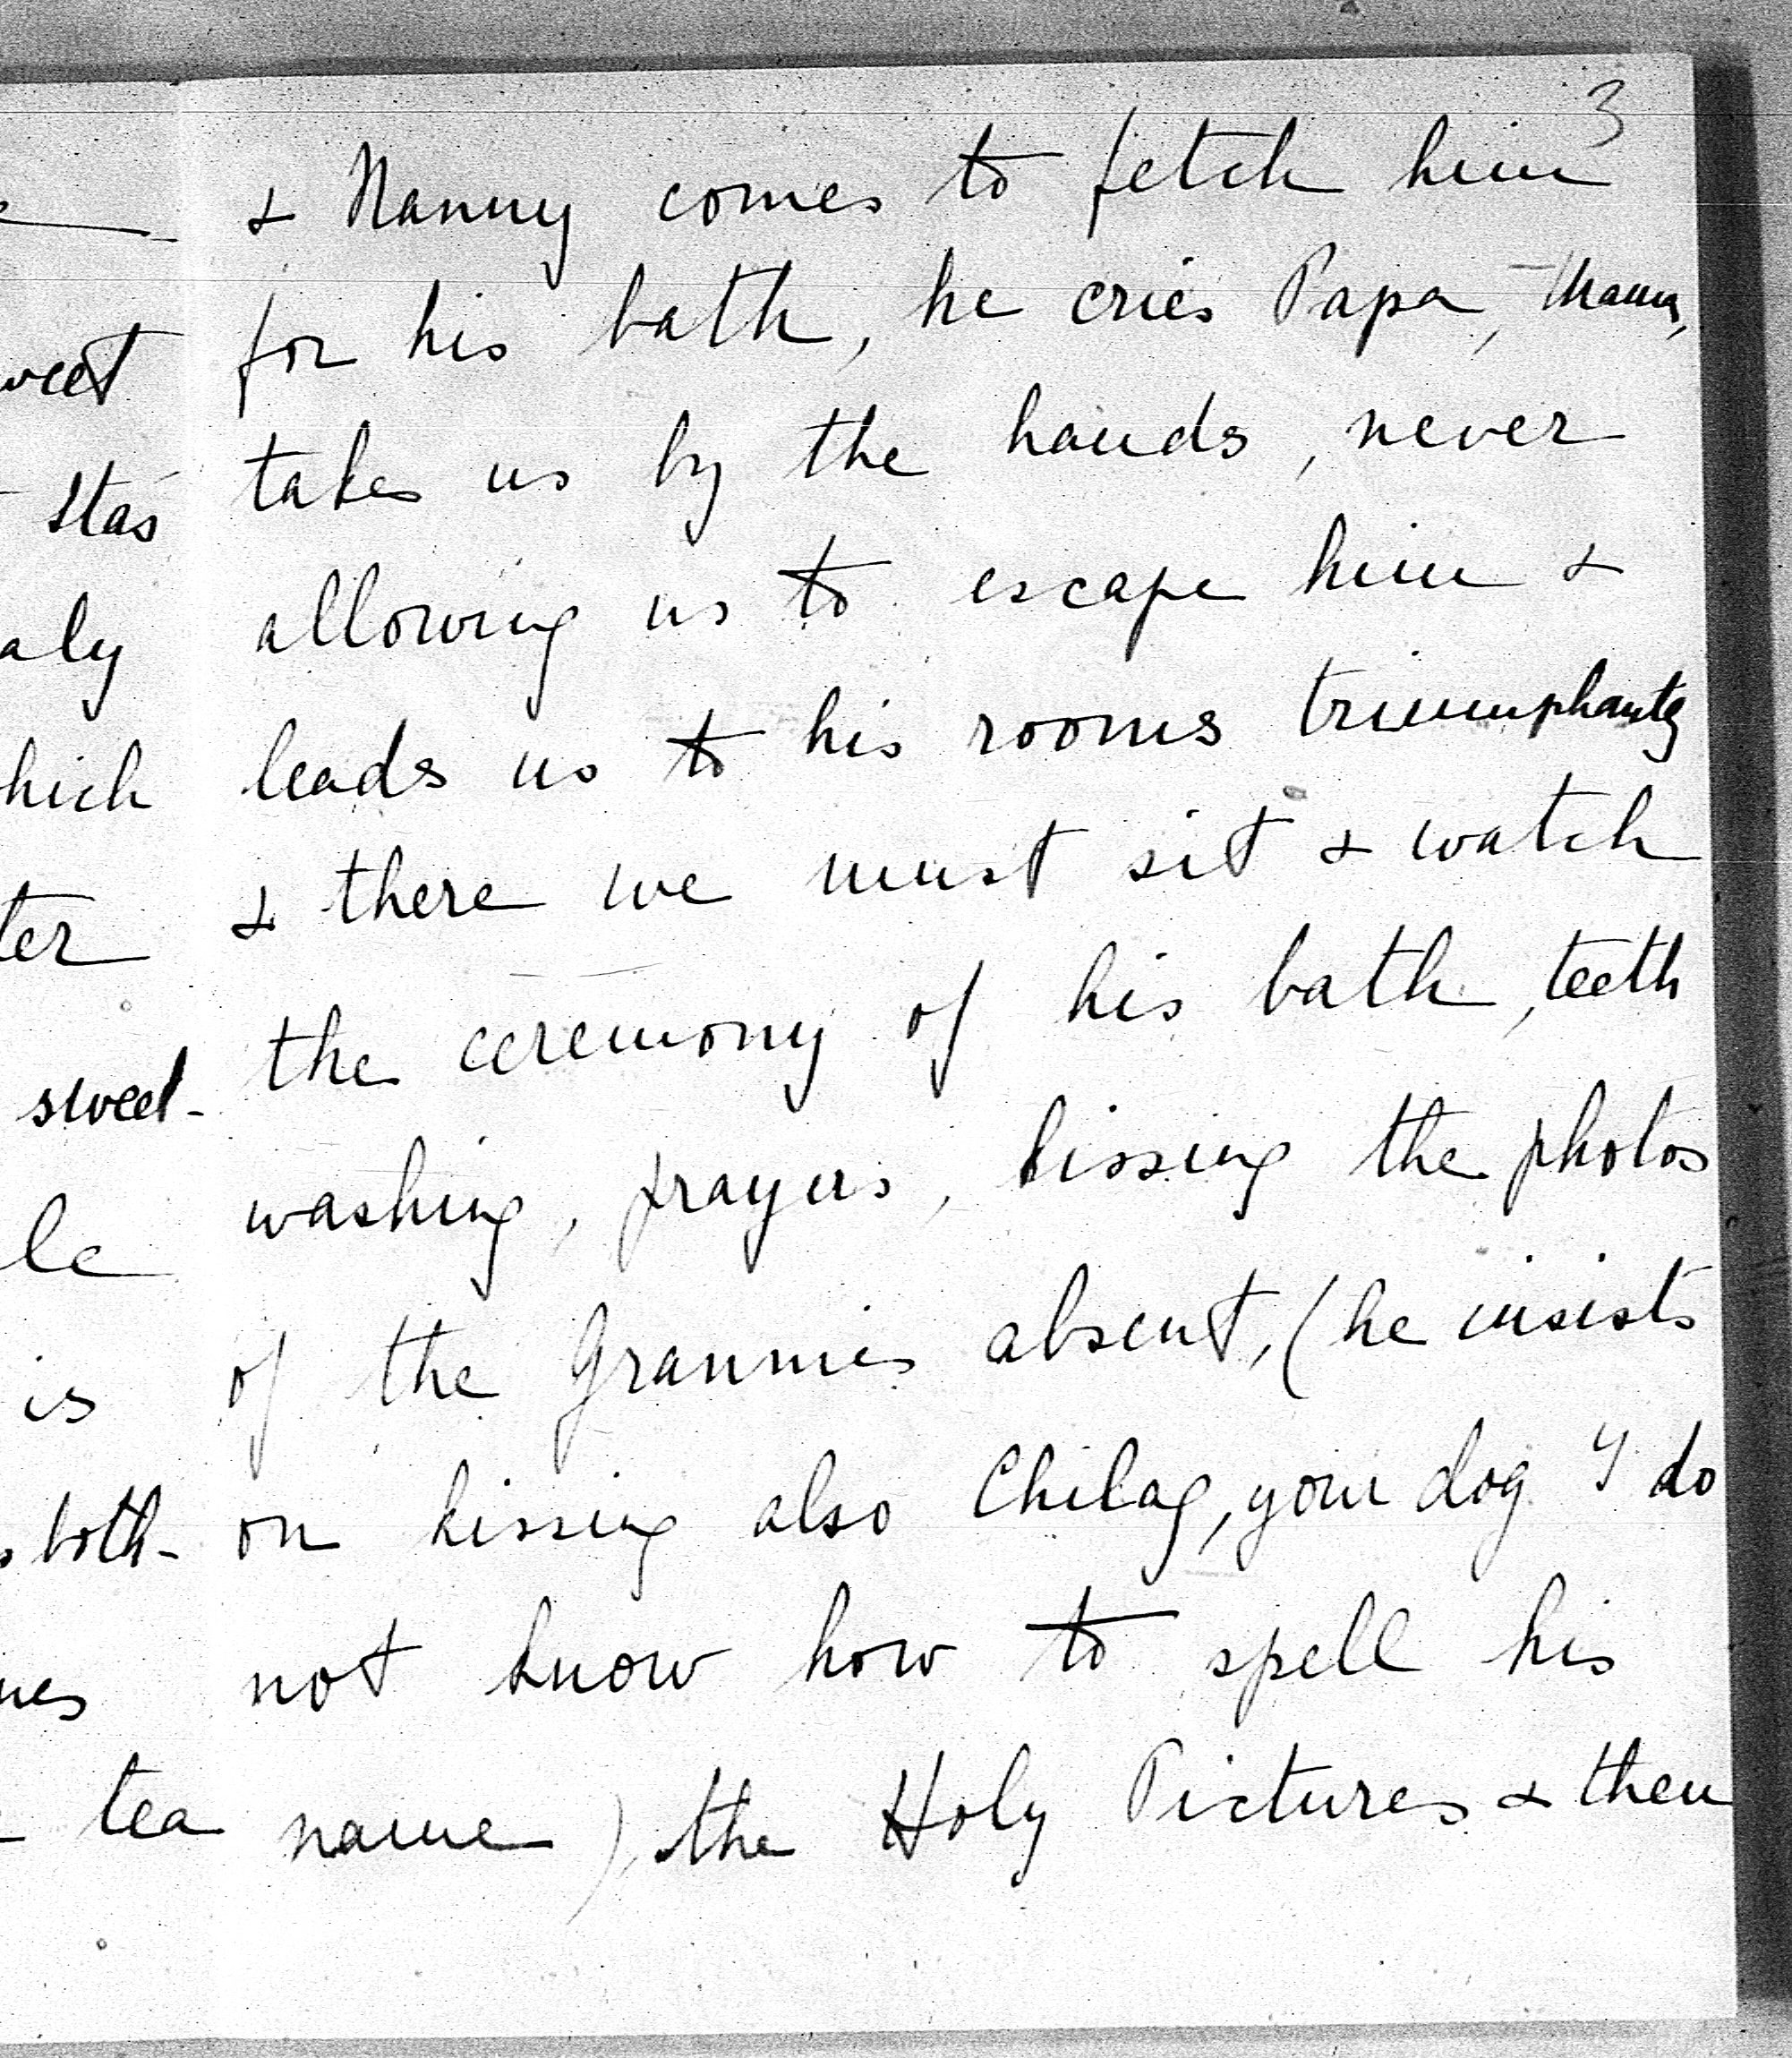 3
& Nanny comes to fetch him
for his bath, he cries Papa, Mama,
takes us by the hands, never
allowing us to escape him &
leads us to his rooms triumphantly
& there we must sit & watch
the ceremony of his bath, teeth
washing, prayers, kissing the photos
of the Grannies absent, (he insists
on kissing also Chilag, your dog I do
not know how to spell his
name), the Holy Pictures & then
weet
stas
aly
hich
ter
sweet-
le
is
both-
nes
tea